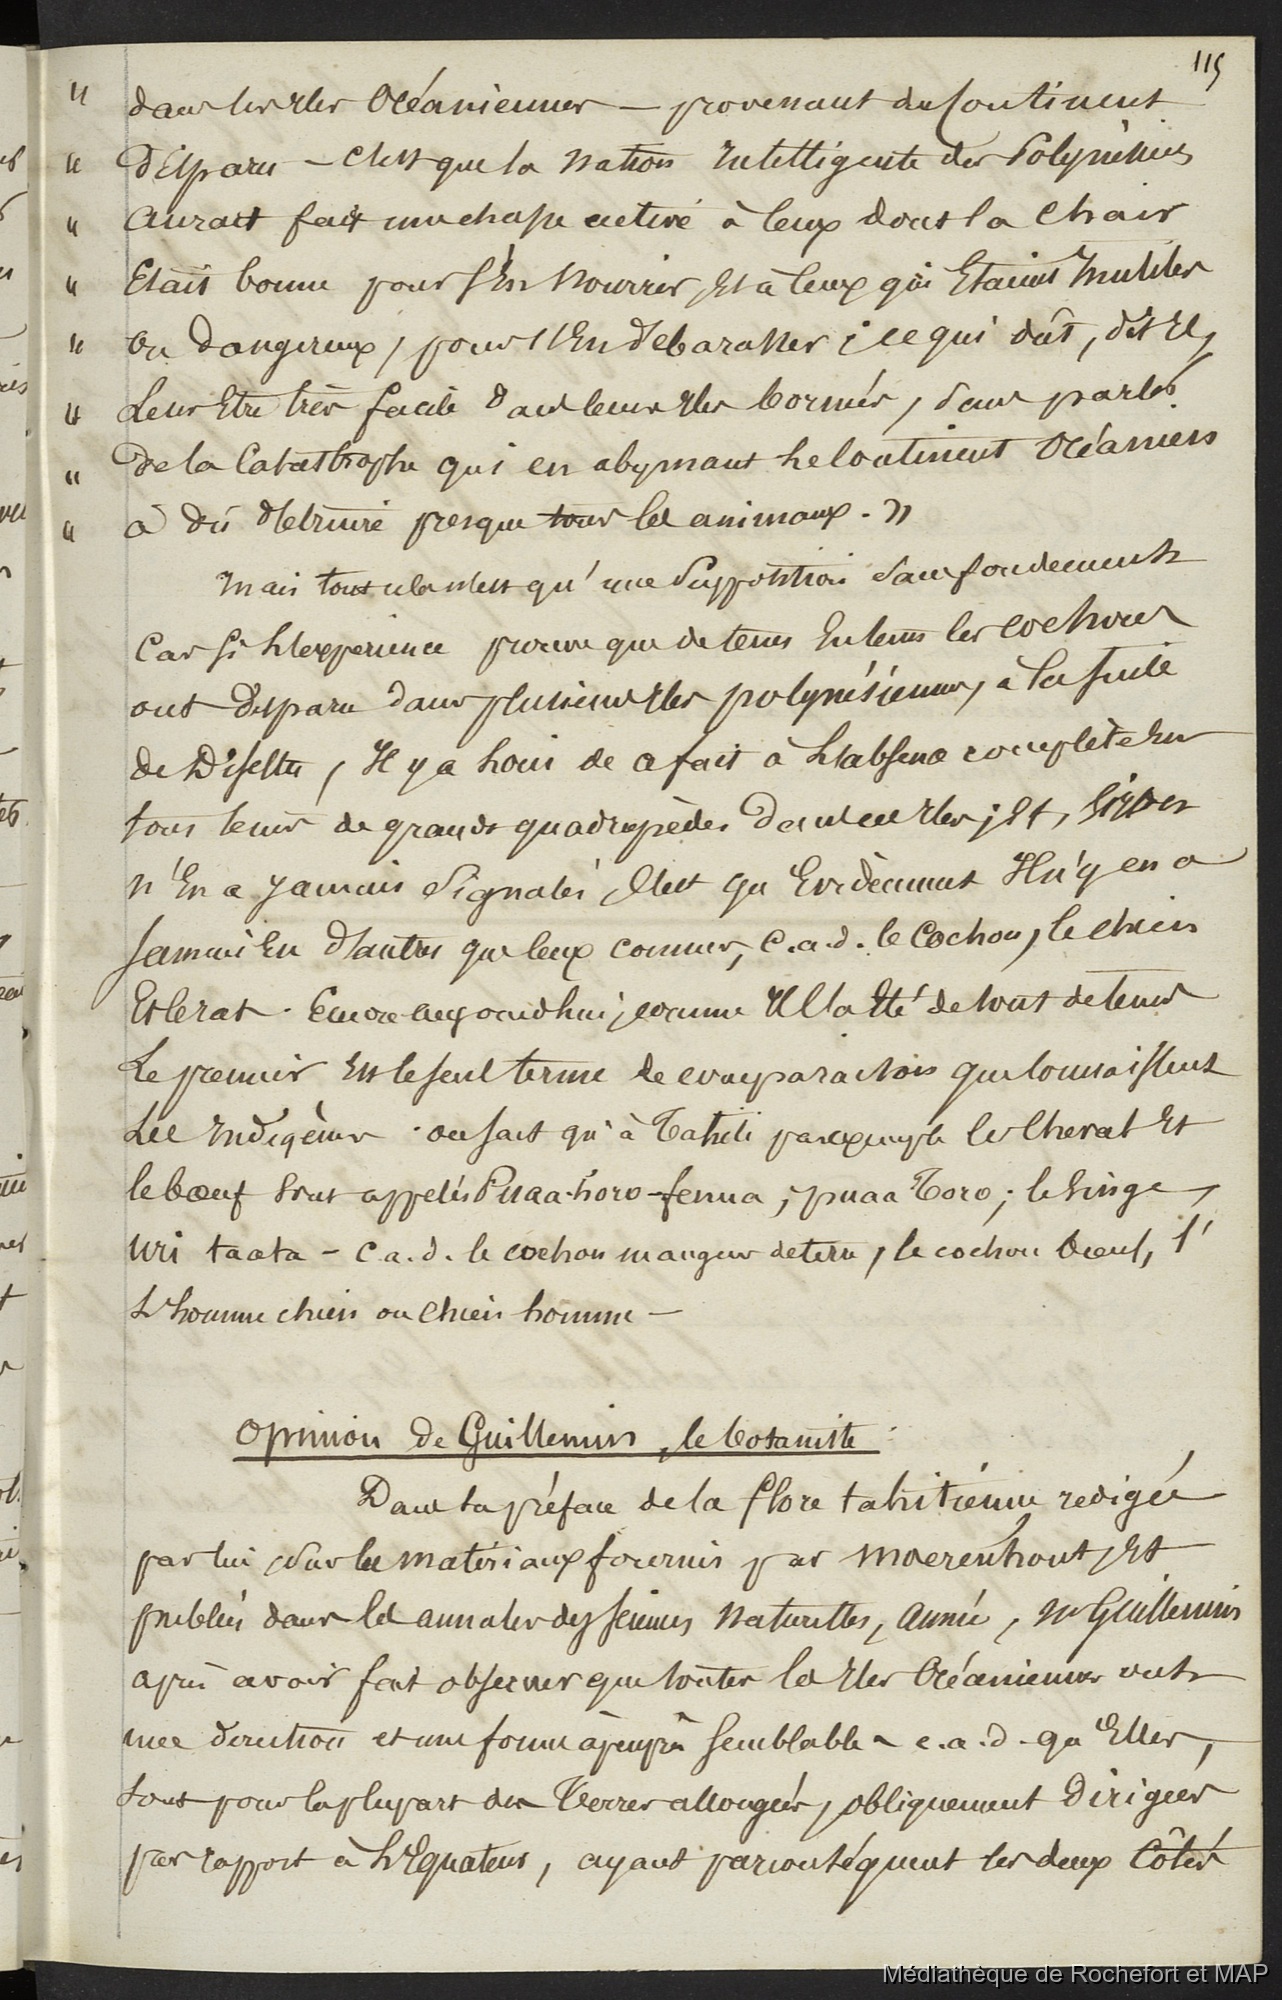 115
" dans les Iles Océaniennes — provenant du Continent
" disparu — c'est que la Nation Intelligente des Polynésiens
" aurait fait une chasse active à ceux dont la Chair
" Etait bonne pour s'En Nourrir, Et à ceux qui Etaient Inutiles
" ou dangereux, pour s'En debarasser ; ce qui dût, dit Il,
" Leur Etre très facile dans leurs Iles bornées, sans parler
" de la Catastrophe qui en abymant le Continent Océanien
" à dû détruire presque tous les animaux. "
Mais tout cela n'est qu'une Supposition sans fondements
Car si l'experience prouve que de tems En tems les cochons
ont disparu dans plusieurs Iles polynésiennes, à la suite
de Disettes, Il y a loin de ce fait à l'absence complète En
tous tems de grands quadrupèdes dans ces Iles ; Et, si on
n'En a jamais Signalés, C'est qu'Evidemment Il n'y en a
jamais Eu d'autres que ceux connus, c.a.d. le Cochon, le chien
Et le rat. Encore aujourd'hui, comme Il l'a Eté de tout tems
Le premier Est le seul terme de comparaison que connaissent
Les Indigènes. on sait qu'à Tahiti par exemple le Cheval Et
le bœuf sont appelés Puaa-horo-fenua ; puaa Toro ; le Singe,
Uri taata – c.a.d. le cochon mangeur de terre, le cochon bœuf, l'
L'homme chien ou Chien homme —
Opinion de Guillemin, le botaniste :
Dans sa préface de la flore tahitienne redigée
par lui, sur les matériaux fournis par Moerenhout, Et
publiés dans les annales des sciences Naturelles, année , Mr Guillemin
après avoir fait observer que toutes les Iles Océaniennes ont
une direction et une forme àpeuprès semblable – c.a.d. qu'Elles,
sont pour la plupart des Terres allongées, obliquement Dirigées
par rapport à l'Equateur, ayant par conséquent les deux Côtés
Médiathèque de Rochefort et MAP